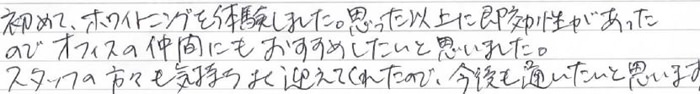 初めて、ホワイトニングを体験しました。思った以上に即効性があった
のでオフィスの仲間にもおすすめしたいと思いました。
スタッフの方々も気持ちよく迎えてくれたので、今後も通いたいと思います